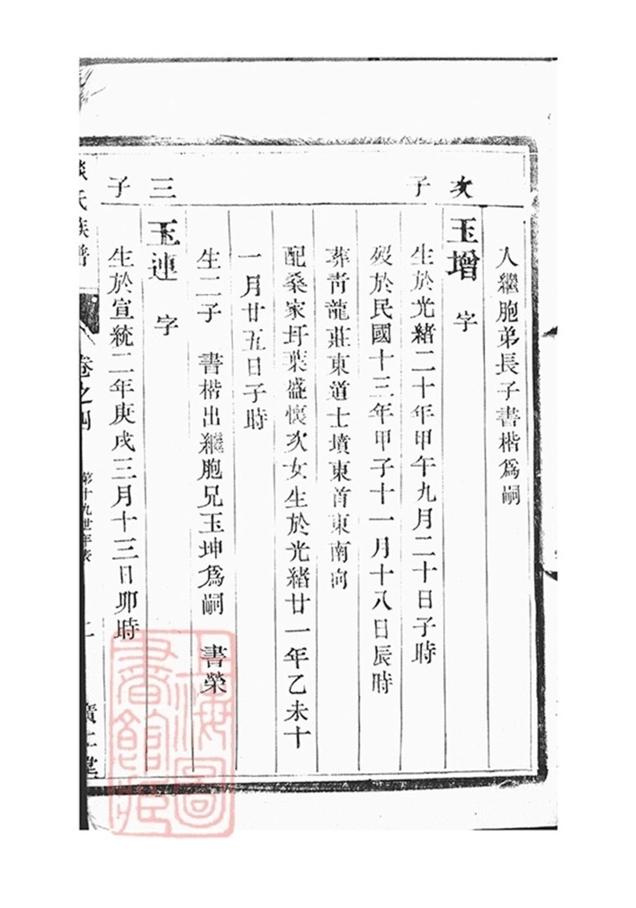 人繼胞弟長子書楷爲嗣
次子
玉增 字
生於光緒二十年甲午九月二十日子時
歿於民國十三年甲子十一月十八日辰時
葬靑龍莊東道士墳東首東南向
配桑家圩葉盛懷次女生於光緒廿一年乙未十
一月廿五日子時
生二子 書楷出繼胞兄玉坤爲嗣 書榮
三子
玉連 字
生於宣統二年庚戌三月十三日卯時
氏族譜 卷之四 第十九世年表 二 廣仁堂
上海圖書館藏